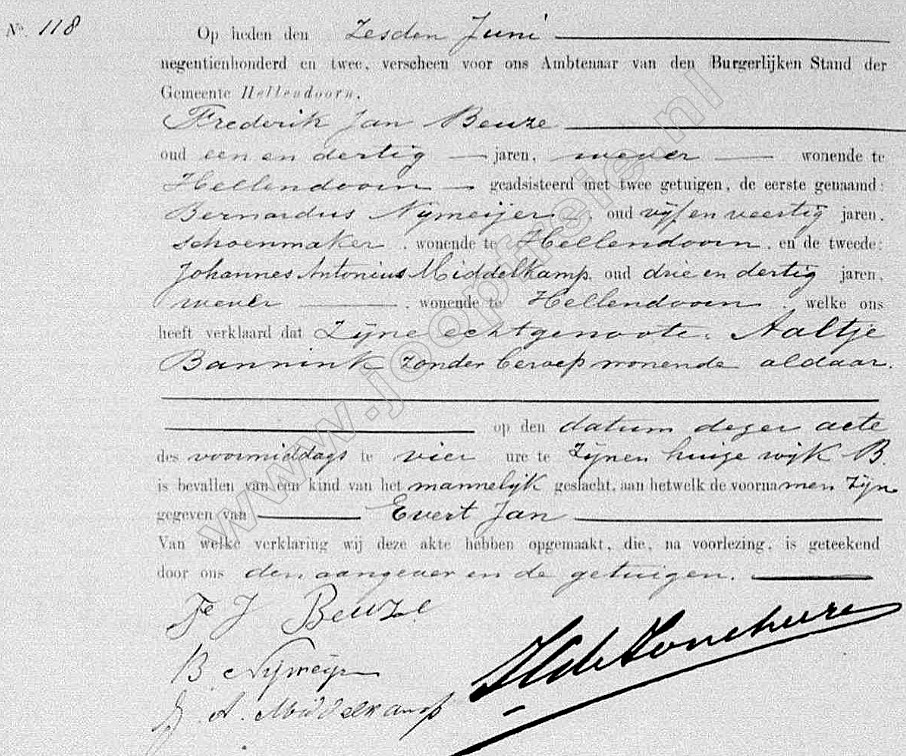 No. 118
Op heden den Zesden Juni
negentienhonderd en twee, verscheen voor ons Ambtenaar van den Burgerlijken Stand der
Gemeente Hellendoorn,
Frederik Jan Beuze
oud een en dertig jaren, wever wonende te
Hellendoorn geadsisteerd met twee getuigen, de eerste genaamd:
Bernardus Nijmeijer, oud vijf en veertig jaren,
schoenmaker, wonende te Hellendoorn, en de tweede:
Johannes Antonius Middelkamp, oud drie en dertig jaren,
wever, wonende te Hellendoorn, welke ons
heeft verklaard dat Zijne echtgenoote, Aaltje
Bannink zonder beroep wonende aldaar.
op den datum dezer acte
des voormiddags te vier ure te Zijnen huize wijk B.
is bevallen van een kind van het mannelijk geslacht, aan hetwelk de voornamen zijn
gegeven van Evert Jan
Van welke verklaring wij deze akte hebben opgemaakt, die, na voorlezing, is geteekend
door ons den aangever en de getuigen.
F J Beuze
B Nijmeijer
J. A. Middelkamp
www.jooptheie.nl